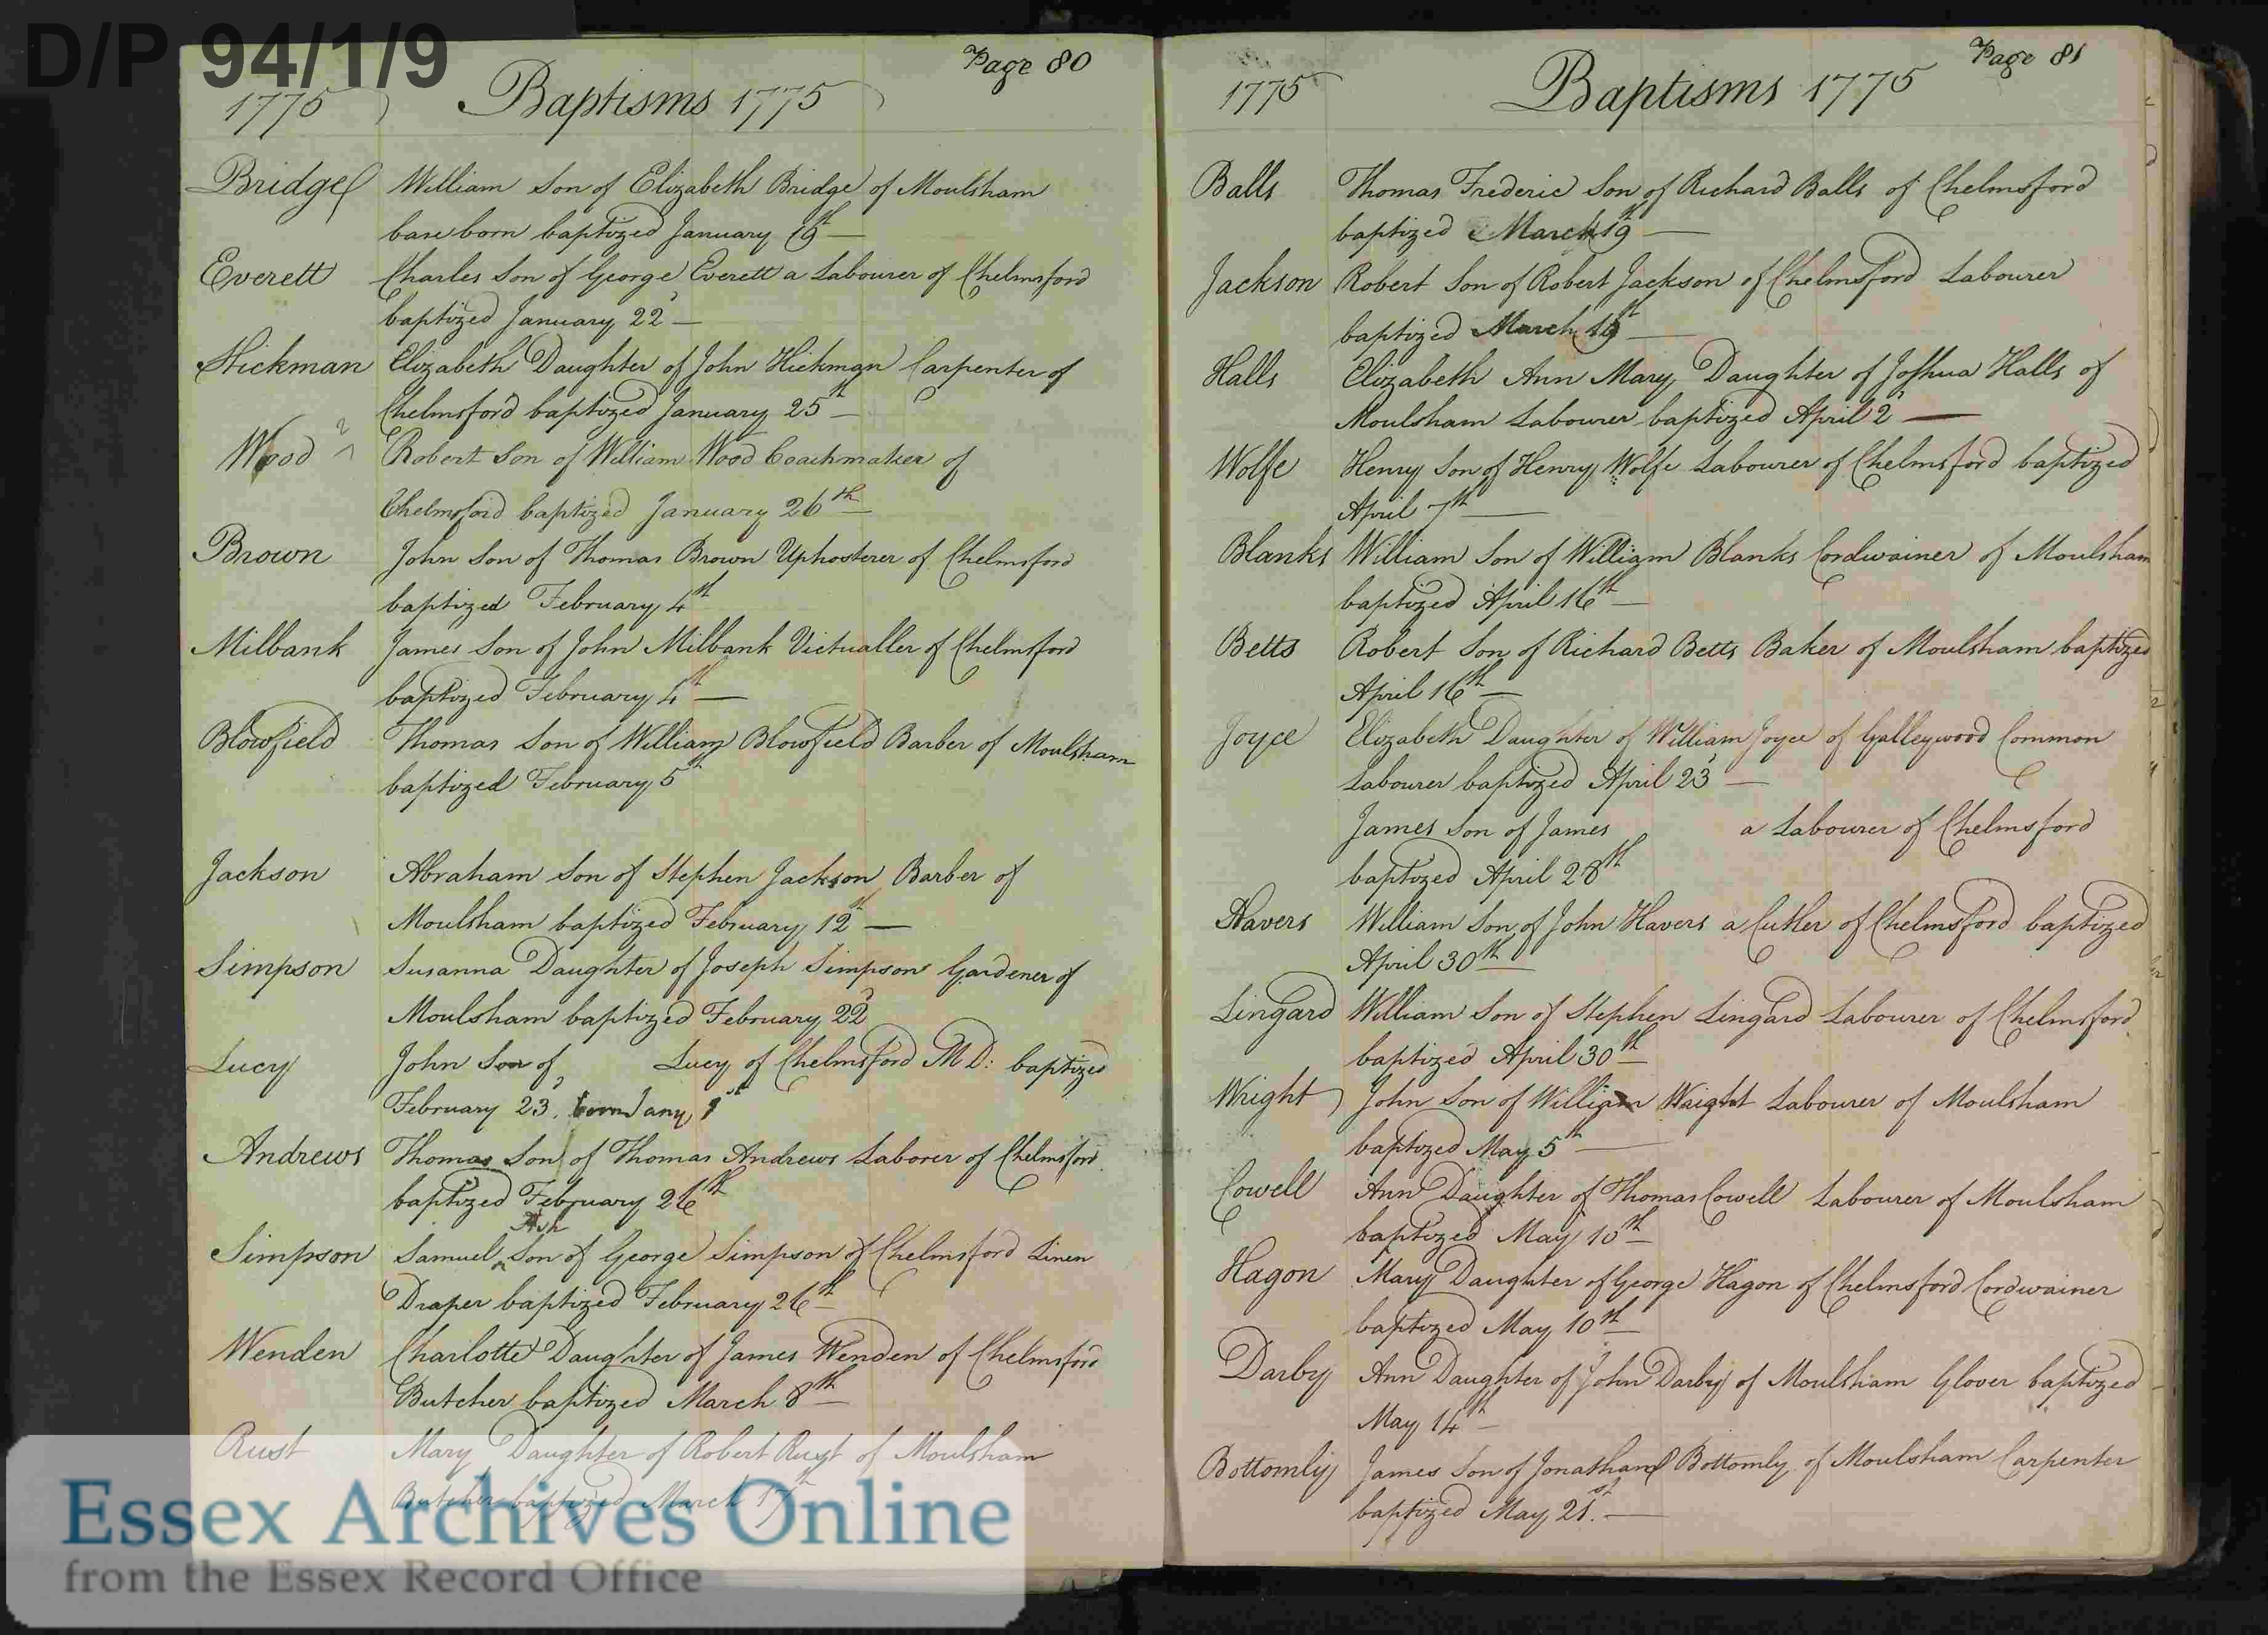 D/P 94/1/9
Page 80
1775 Baptisms 1775
Bridge William Son of Elizabeth Bridge of Moulsham
base born baptized January 19th
Everett Charles Son of George Everett a Labourer of Chelmsford
baptized January 22d
Hickman Elizabeth Daughter of John Hickman Carpenter of
Chelmsford baptized January 25th
Wood Robert Son of William Wood Coachmaker of
Chelmsford baptized January 26th
Brown John Son of Thomas Brown Uphosterer of Chelmsford
baptized February 4th
Milbank James Son of John Milbank Victualler of Chelmsford
baptized February 4th
Blowfield Thomas Son of William Blowfield Barber of Moulsham
baptized February 5th
Jackson Abraham Son of Stephen Jackson Barber of
Moulsham baptized February 12th
Simpson Susanna Daughter of Joseph Simpson Gardener of
Moulsham baptized February 22d
Lucy John Son of Lucy of Chelmsford MD: baptized
February 23d, born Jany 1st
Andrews Thomas Son of Thomas Andrews Laborer of Chelmsford
baptized February 26th
Ash
Simpson Samuel ^ Son of George Simpson of Chelmsford Linen
Draper baptized February 26th
Wenden Charlotte Daughter of James Wenden of Chelmsford
Butcher baptized March 8th
Rust Mary Daughter of Robert Rust of Moulsham
Butcher baptized March 17th
Page 81
1775 Baptisms 1775
Balls Thomas Frederic Son of Richard Balls of Chelmsford
baptized March 19th
Jackson Robert Son of Robert Jackson of Chelmsford Labourer
baptized March
Halls Elizabeth Ann Mary Daughter of Joshua Halls of
Moulsham Labourer baptized April 2d
Wolfe Henry Son of Henry Wolfe Labourer of Chelmsford baptized
April 7th
Blanks William Son of William Blanks Cordwainer of Moulsham
baptized April 16th
Betts Robert Son of Richard Betts Baker of Moulsham baptized
April 16th
Joyce Elizabeth Daughter of William Joyce of Galleywood Common
Labourer baptized April 23d
James Son of James a Labourer of Chelmsford
baptized April 28th
Havers William Son of John Havers a Cutler of Chelmsford baptized
April 30th
Lingard William Son of Stephen Lingard Labourer of Chelmsford
baptized April 30th
Wright John Son of William Wright Labourer of Moulsham
baptized May 5th
Cowell Ann Daughter of Thomas Cowell Labourer of Moulsham
baptized May 10th
Hagon Mary Daughter of George Hagon of Chelmsford Cordwainer
baptized May 10th
Darby Ann Daughter of John Darby of Moulsham Glover baptized
May 14th
Bottomly James Son of Jonathan Bottomly of Moulsham Carpenter
baptized May 21st.
Essex Archives Online
from the Essex Record Office